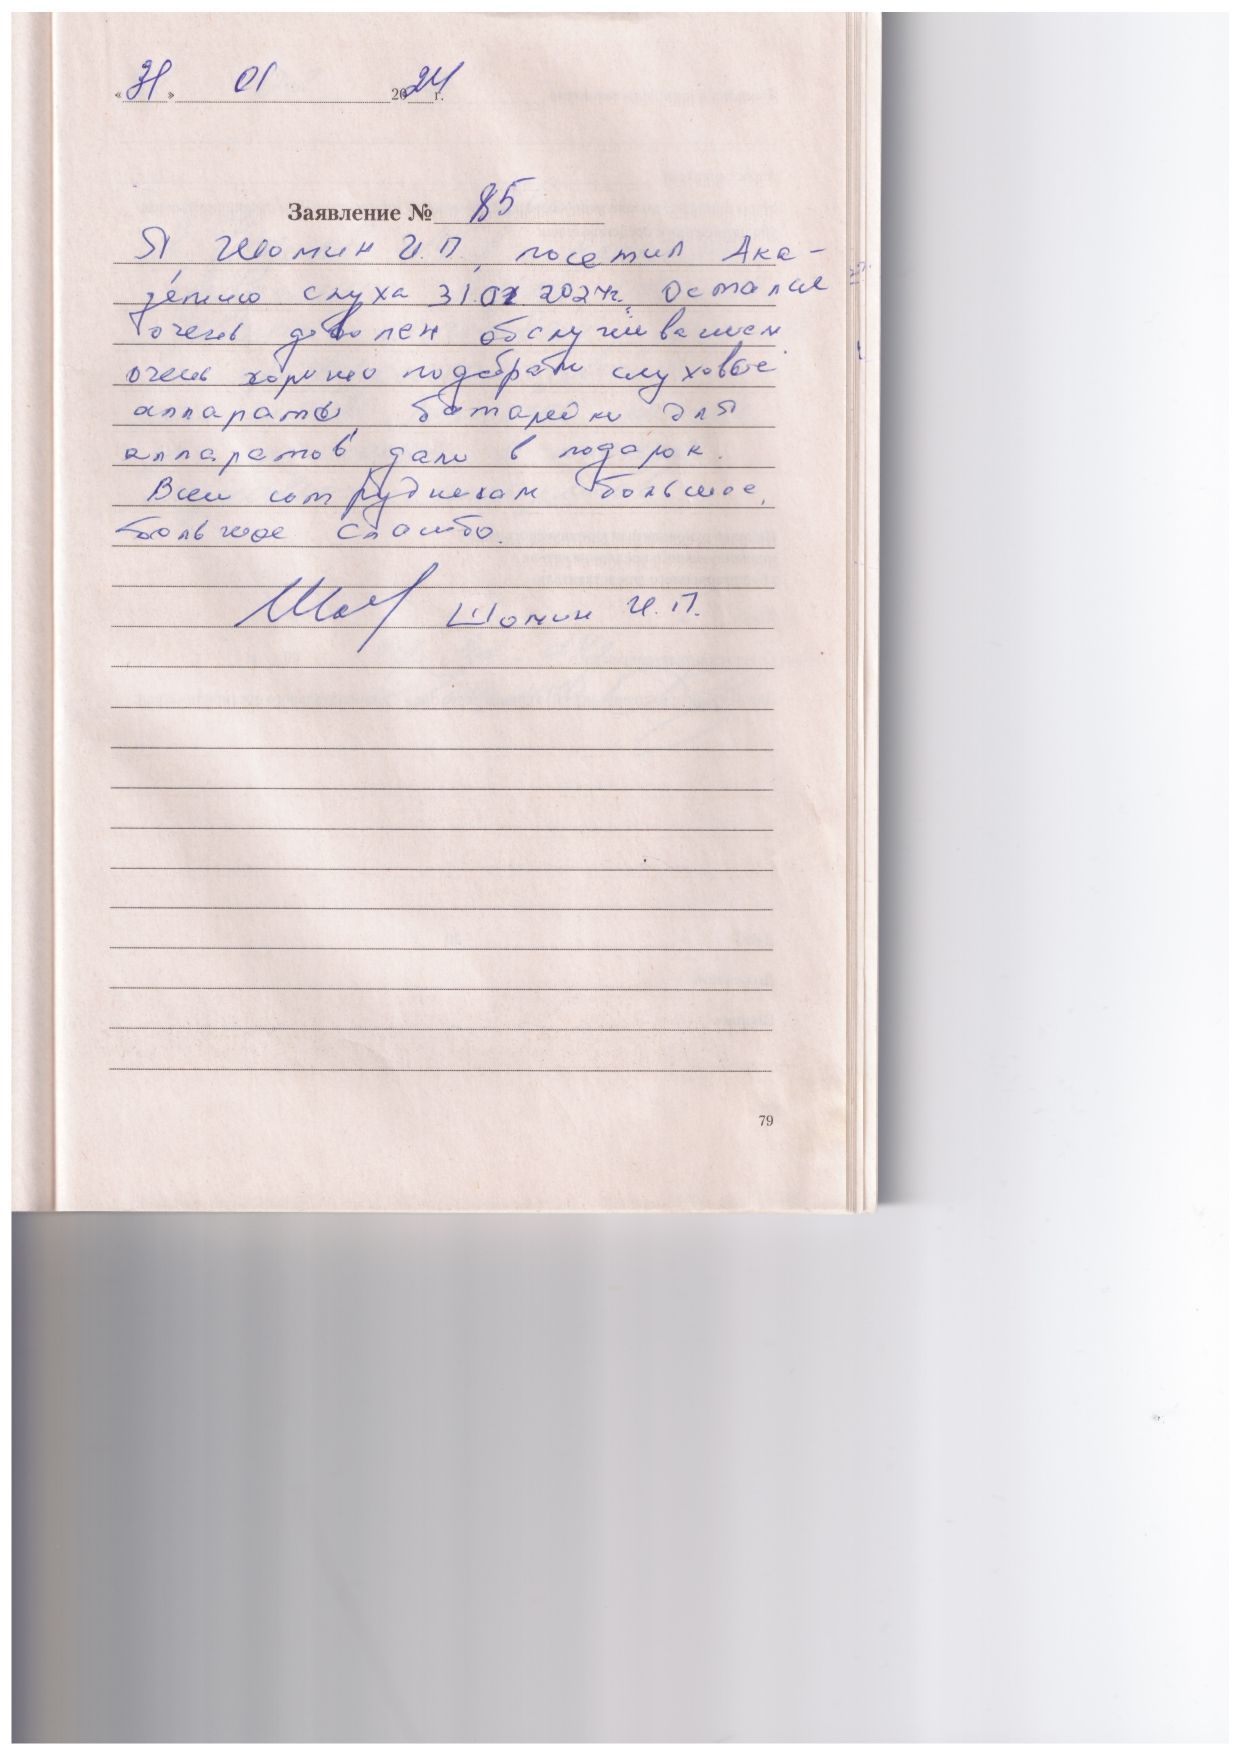 «31» 01 2024 г.
Заявление № 85
Я Шомин И.П., посетил Ака-
демию слуха 31.01 2024г. Остался
очень доволен обслуживанием
очень хорошо подобрали слуховые
аппараты, батарейки для
аппаратов дали в подарок.
Всем сотрудникам большое,
большое спасибо.
Шомин И.П.
79